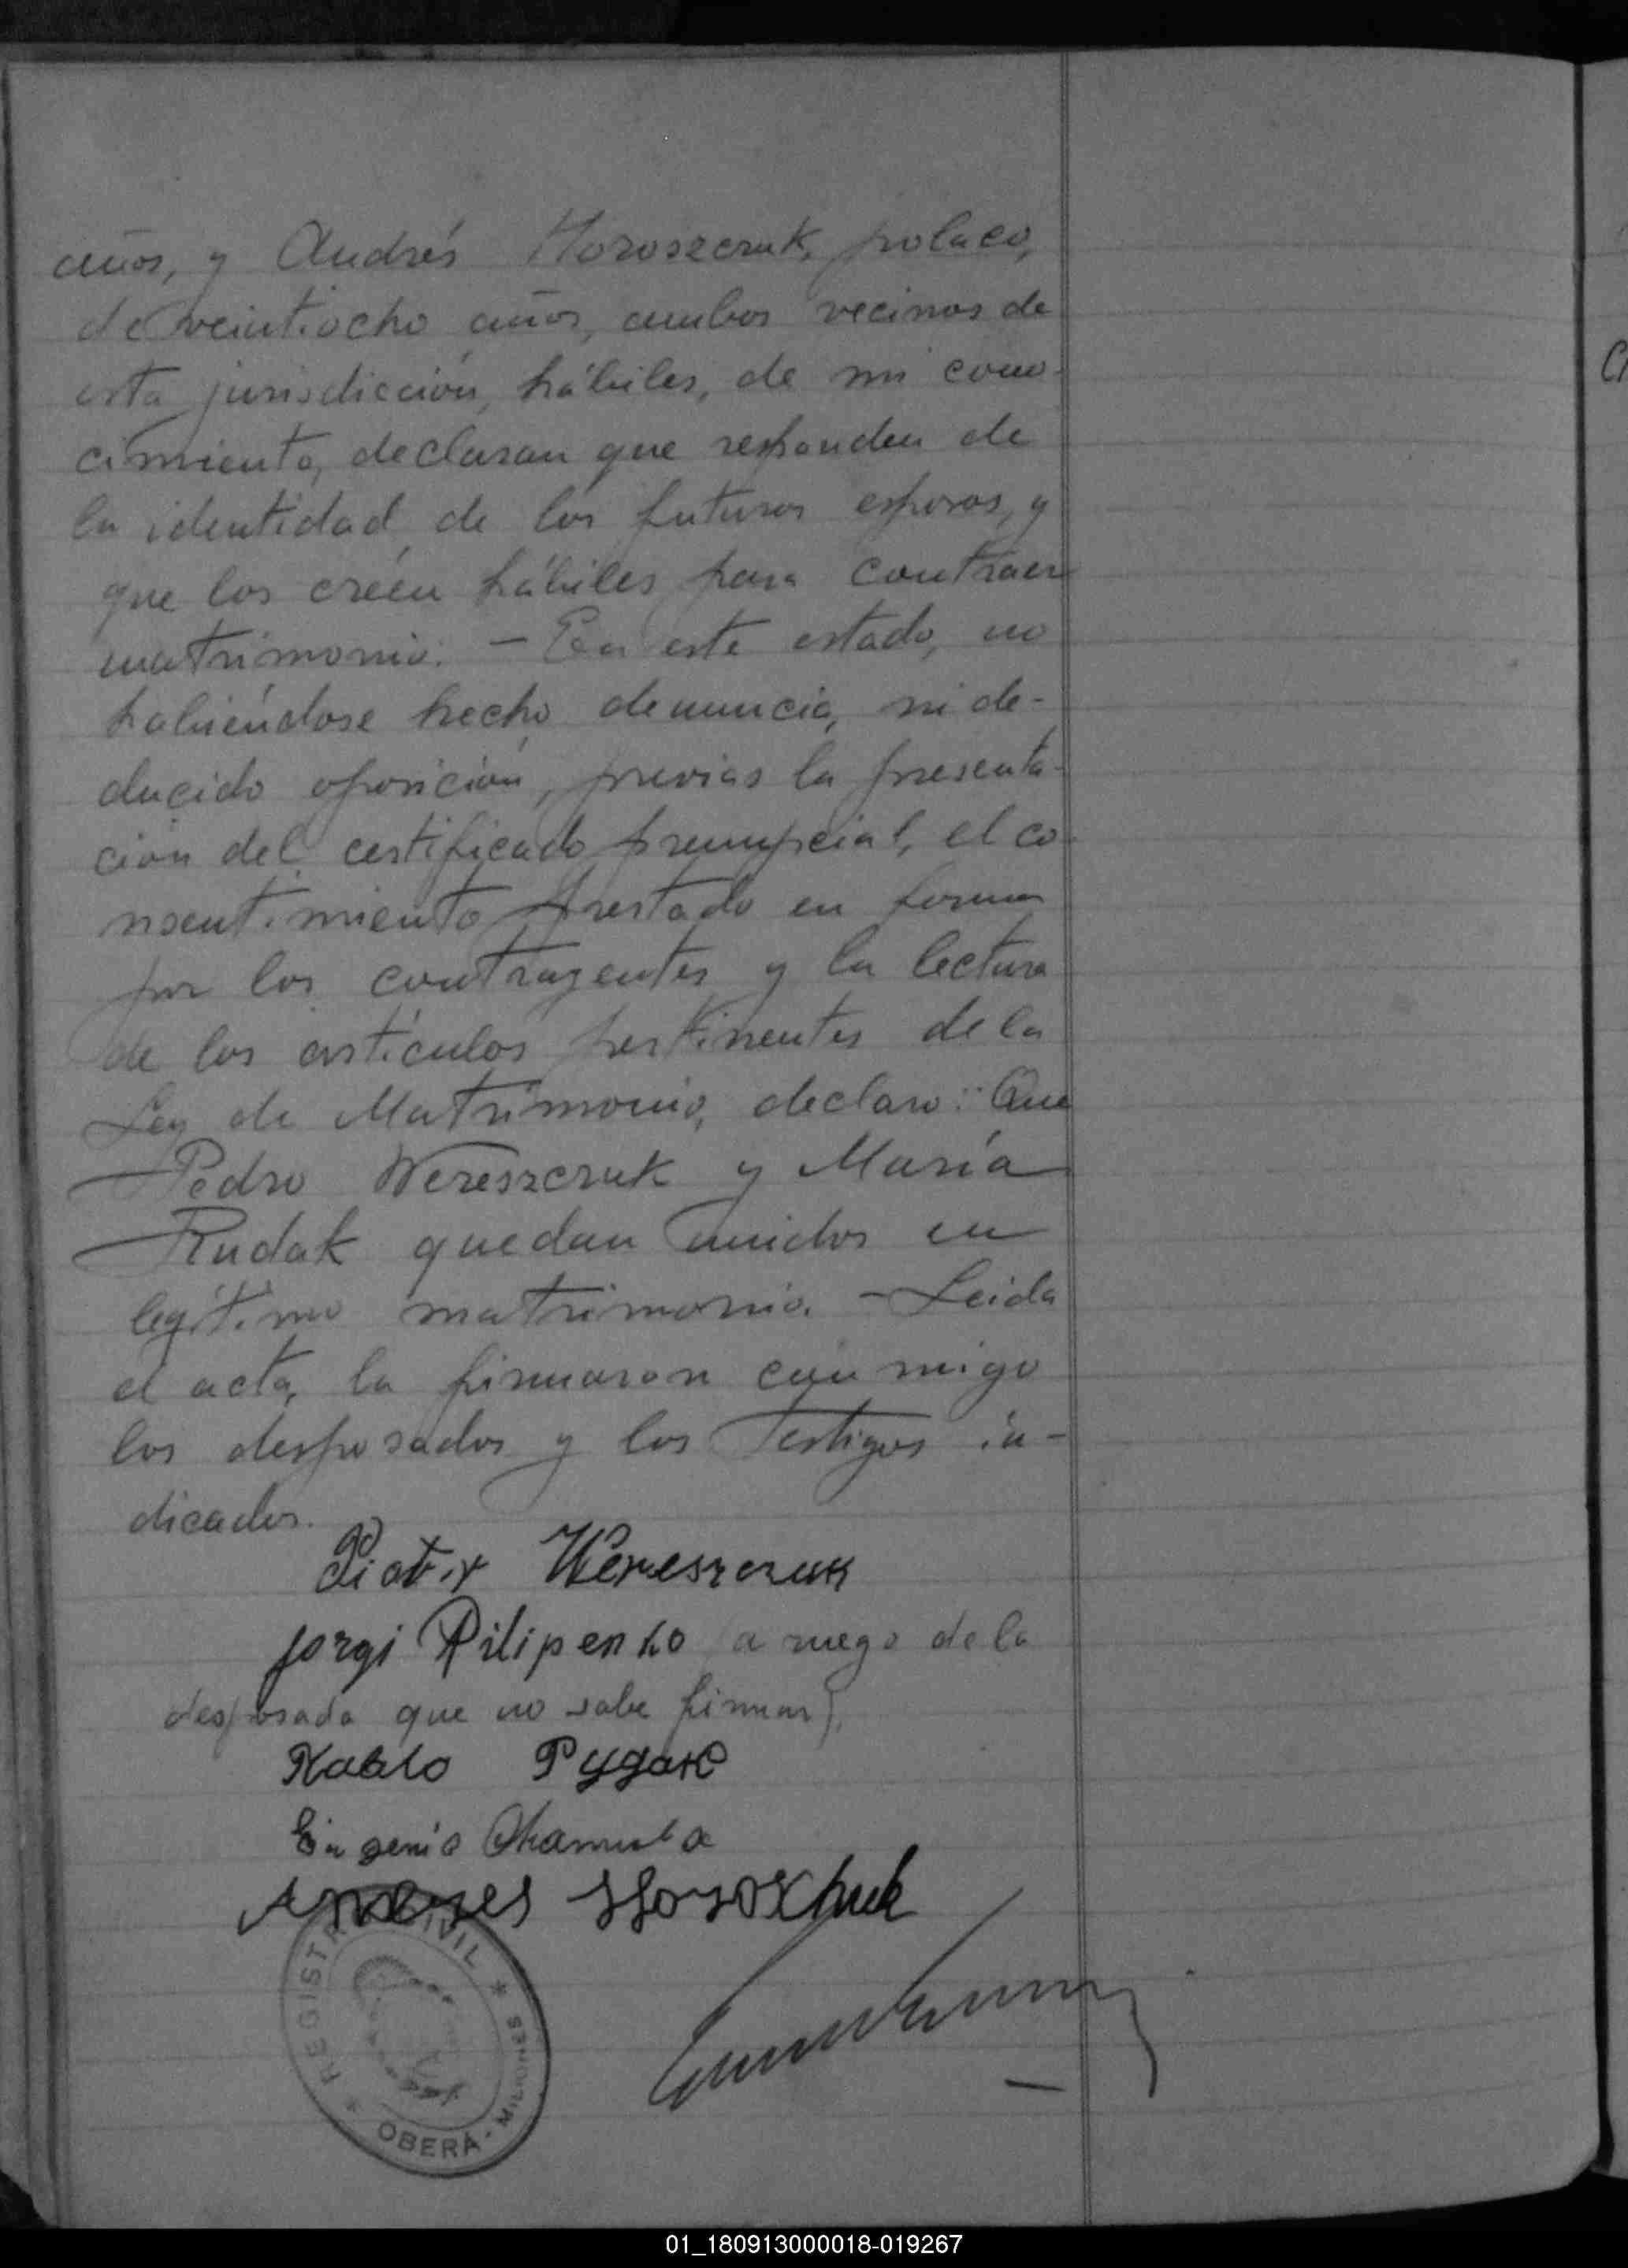 años, y Andrés Horoszczuk, polaco,
de veintiocho años, ambos vecinos de
esta jurisdicción, hábiles, de mi cono-
cimiento, declaran que responden de
la identidad de los futuros esposos, y
que los créen hábiles para contraer
matrimonio. — En este estado, no
habiéndose hecho denuncia, ni de-
ducido oposición, previas la presenta-
ción del certificado prenupcial, el co-
nsentimiento prestado en forma
por los contrayentes y la lectura
de los artículos pertinentes de la
Ley de Matrimonio, declaro: Que
Pedro Wereszczuk y María
Rudak quedan unidos en
legítimo matrimonio. — Leida
el acta, la firmaron conmigo
los desposados y los testigos in-
dicados.
Piotr Wereszczuk
Jorgi Pilipenko (a ruego de la
desposada que no sabe firmar).
Pablo Рудак
Eugenio
Andres Horoschuk
REGISTRO CIVIL * MISIONES - OBERÁ *
01_180913000018-019267